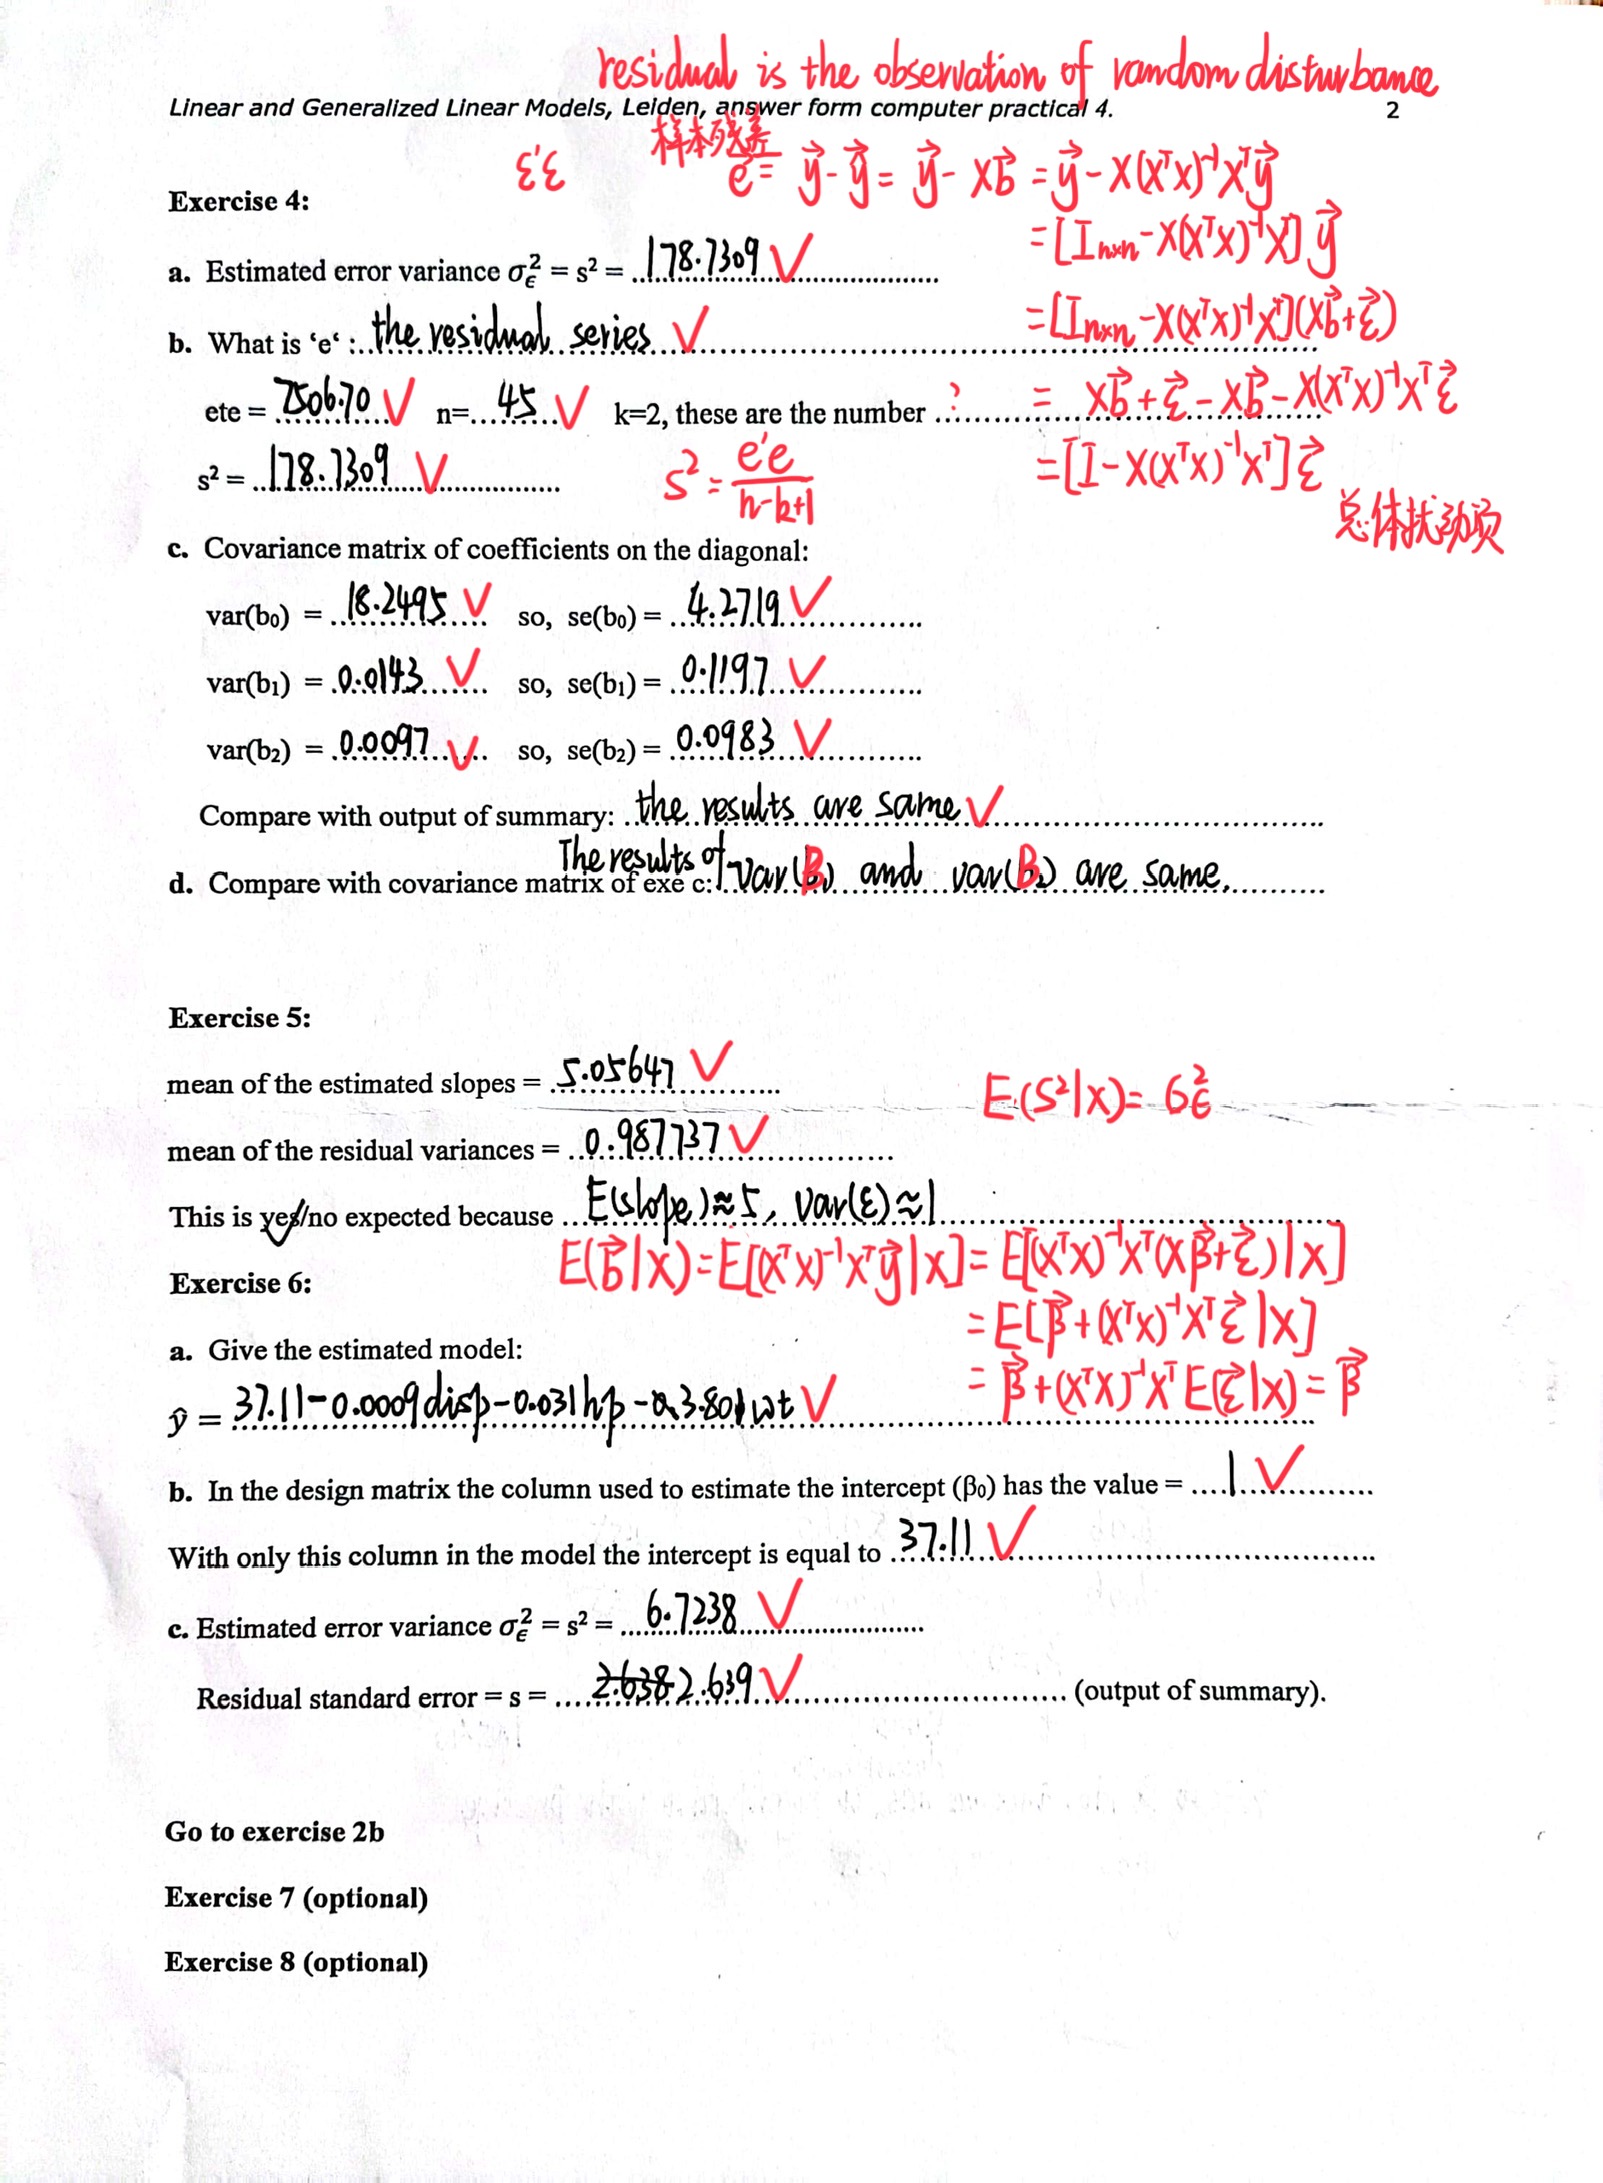 residual is the observation of random disturbance
Linear and Generalized Linear Models, Leiden, answer form computer practical 4. 2
样本残差
ε'ε e⃗ = y⃗ - ŷ⃗ = y⃗ - Xb⃗ = y⃗ - X(XᵀX)⁻¹Xᵀy⃗
Exercise 4:
= [Iₙₓₙ - X(XᵀX)⁻¹Xᵀ] y⃗
a. Estimated error variance σ²_ϵ = s² = 178.7309 ✓
= [Iₙₓₙ - X(XᵀX)⁻¹Xᵀ](Xb⃗ + ε⃗)
b. What is ‘e‘ : the residual series ✓
ete = 7506.70 ✓ n= 45 ✓ k=2, these are the number ?
= Xb⃗ + ε⃗ - Xb⃗ - X(XᵀX)⁻¹Xᵀε⃗
s² = 178.7309 ✓ s² = e'e / n-k+1
= [I - X(XᵀX)⁻¹Xᵀ] ε⃗
总体扰动项
c. Covariance matrix of coefficients on the diagonal:
var(b₀) = 18.2495 ✓ so, se(b₀) = 4.2719 ✓
var(b₁) = 0.0143 ✓ so, se(b₁) = 0.1197 ✓
var(b₂) = 0.0097 ✓ so, se(b₂) = 0.0983 ✓
Compare with output of summary: the results are same ✓
d. Compare with covariance matrix of exe c: The results of var(B) and var(B) are same.
Exercise 5:
mean of the estimated slopes = 5.05647 ✓
E(S²|X) = σ²_ϵ
mean of the residual variances = 0.987737 ✓
This is yes/no expected because E(slope)≈5, var(ε)≈1
E(β⃗|X) = E[(XᵀX)⁻¹Xᵀy⃗|X] = E[(XᵀX)⁻¹Xᵀ(Xβ⃗+ε⃗)|X]
Exercise 6:
= E[β⃗ + (XᵀX)⁻¹Xᵀε⃗|X]
a. Give the estimated model:
= β⃗ + (XᵀX)⁻¹XᵀE(ε⃗|X) = β⃗
ŷ = 37.11-0.0009disp-0.031hp-3.801wt ✓
b. In the design matrix the column used to estimate the intercept (β₀) has the value = 1 ✓
With only this column in the model the intercept is equal to 37.11 ✓
c. Estimated error variance σ²_ϵ = s² = 6.7238 ✓
Residual standard error = s = 2.638 2.639 ✓ (output of summary).
Go to exercise 2b
Exercise 7 (optional)
Exercise 8 (optional)